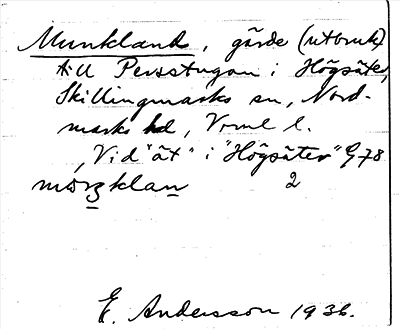 Munkland, gärde (utbruk)
till Persstugan i Högsäter,
Skillingmarks sn, Nord-
marks hd, Vrml l.
"Vid "ät" i "Högsäter" G78
2
E. Andersson 1936.